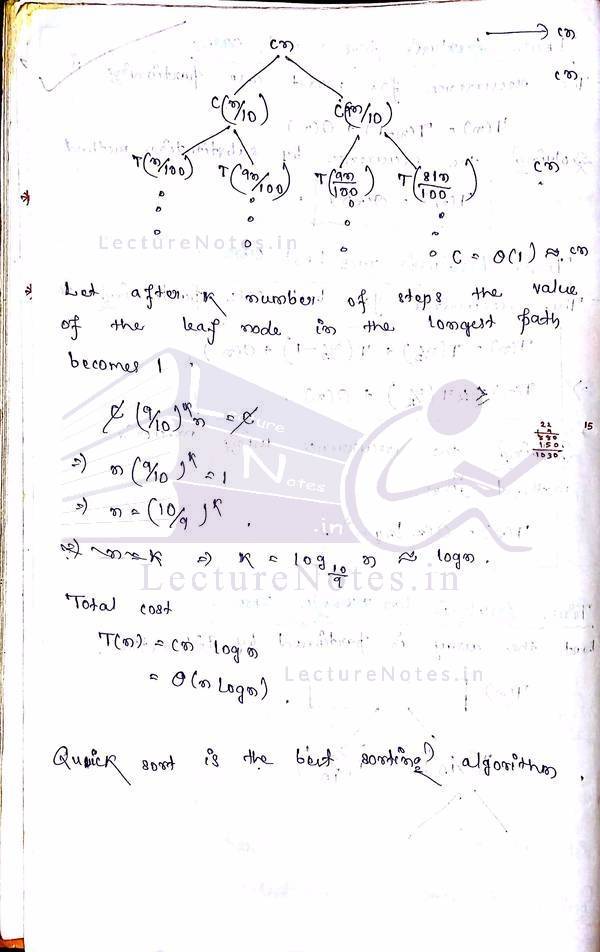 cn → cn
C(n/10) C(9n/10) cn
T(n/100) T(9n/100) T(9n/100) T(81n/100) cn
LectureNotes.in
C = θ(1) ≈ cn
Let after K number of steps the value
of the leaf node in the longest path
becomes 1.
C(9/10)^K n = C
⇒ n(9/10)^K = 1
⇒ n = (10/9)^K.
⇒ K = log_{10/9} n ≈ logn.
LectureNotes.in
Total cost
T(n) = cn logn
LectureNotes.in
= θ(n logn).
Quick sort is the best sorting algorithm.
15